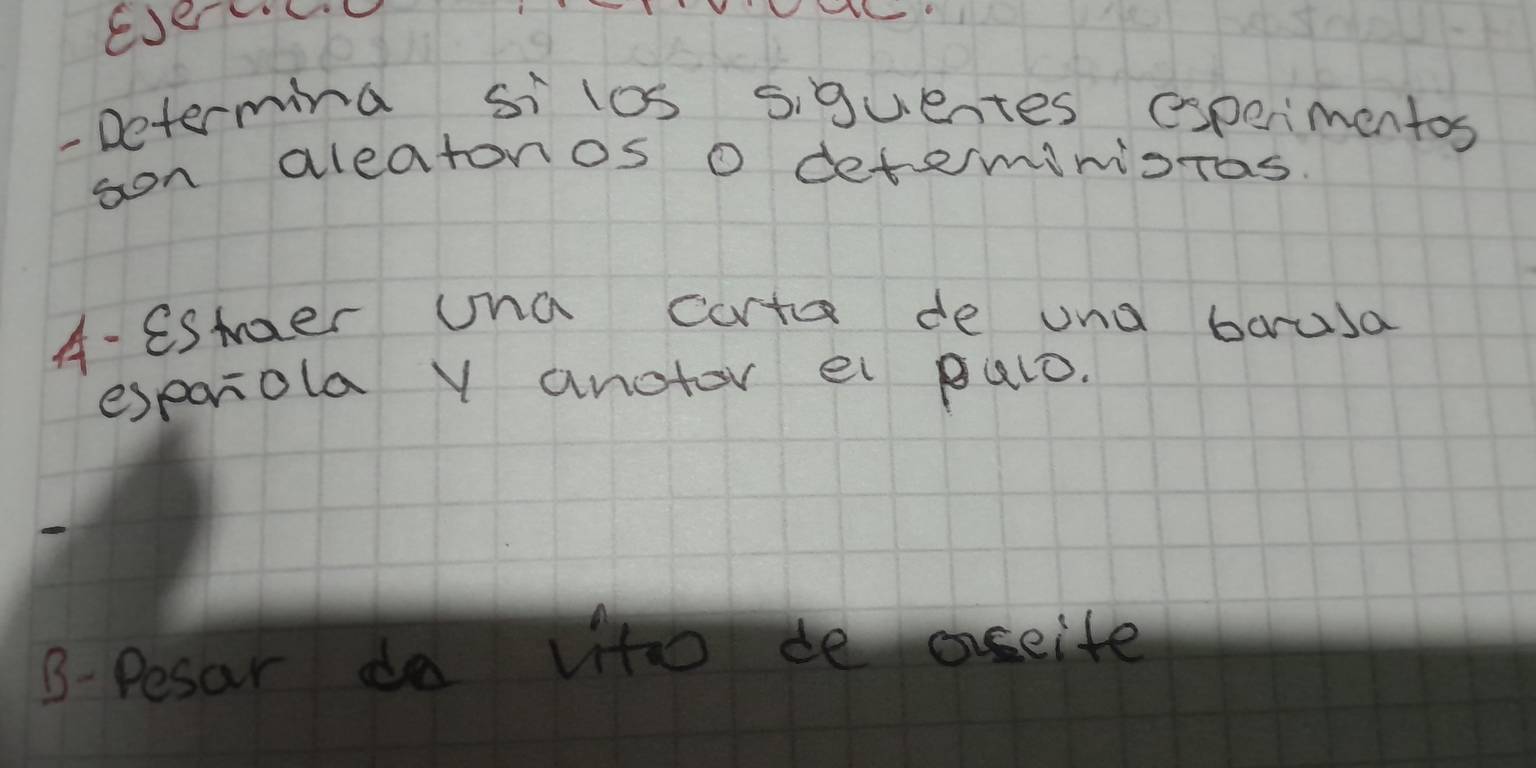 - Determina si los siguentes esperimentos
son aleatorios o deterministas.
A- Estraer una carta de una baraja
española y anotar el palo.
-
B- Pesar de litro de aseite